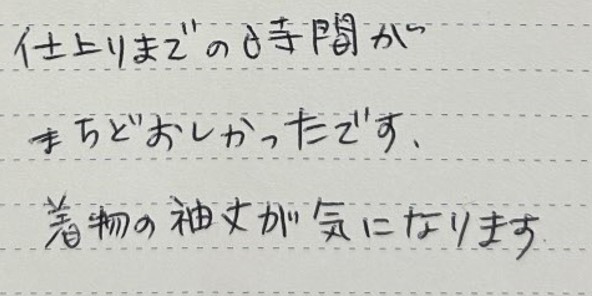 仕上りまでの時間が
まちどおしかったです、
着物の袖丈が気になります